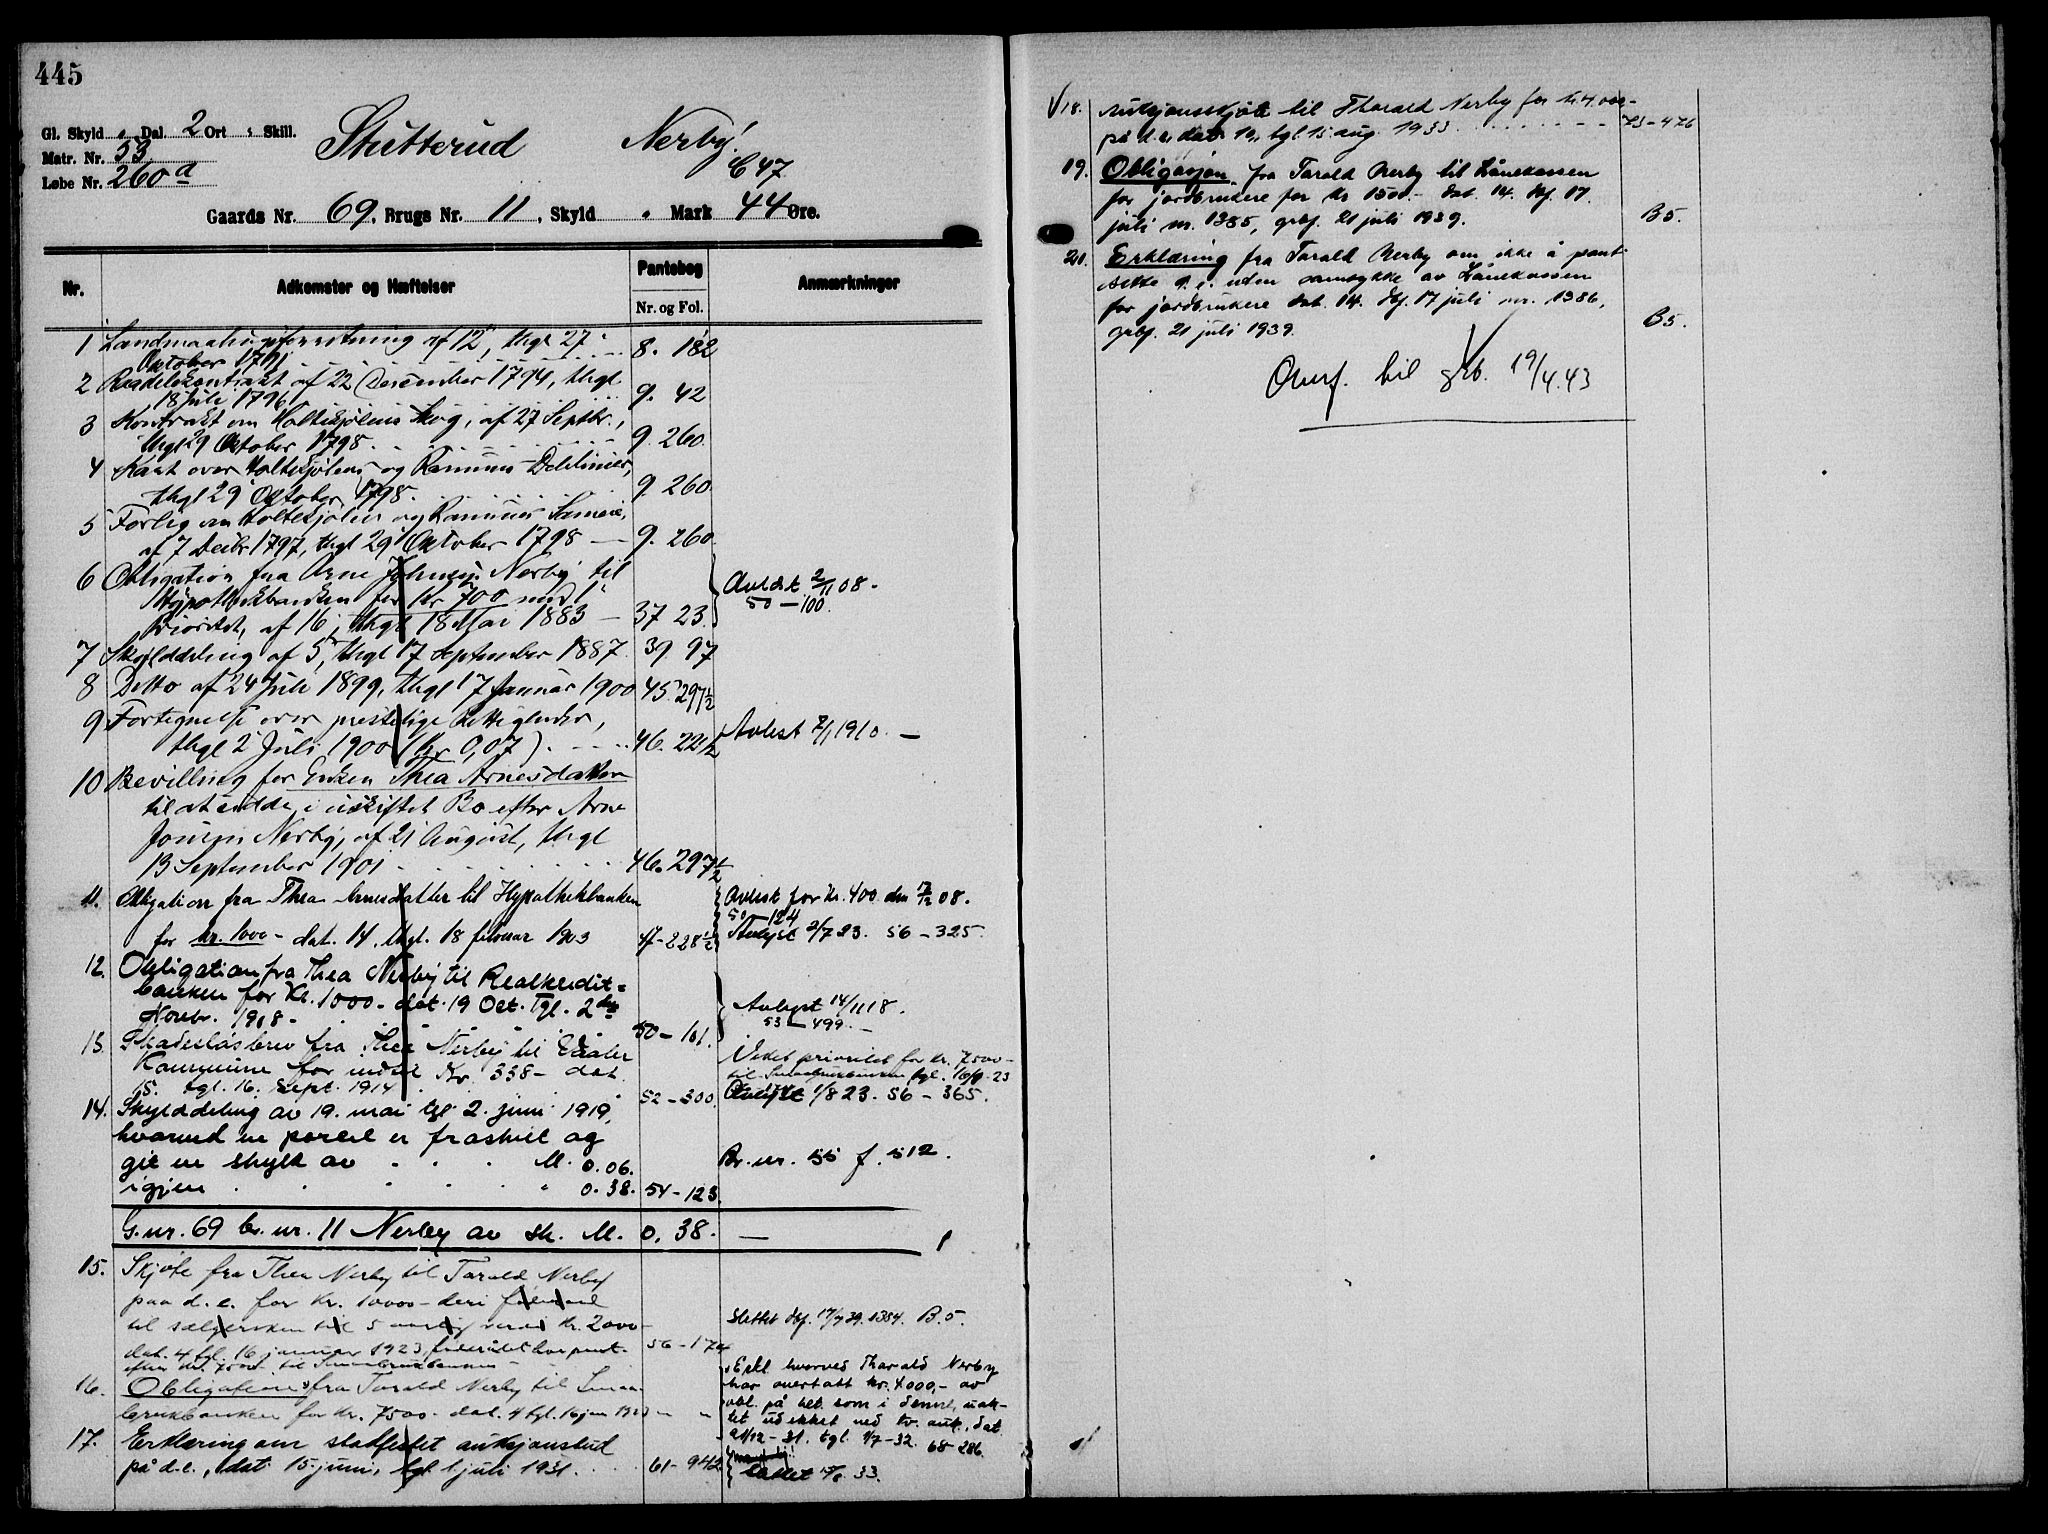 445
Gl. Skyld „ Dal. 2 Ort „ Skill.
Matr. Nr. 53
Løbe Nr. 260d
Stutterud Nerby!
C47
Gaards Nr. 69, Brugs Nr. 11, Skyld „ Mark 44 Øre.
Nr. Adkomster og Hæftelser Pantebog Anmærkninger
Nr. og Fol.
1 Landmaalingsforretning af 12, thgl 27
Oktober 1791 8. 182
2 af 22 December 1794, thgl
18 Juli 1796 9. 42
3 Kontrakt om Holtesjølens Skog, af 27 Septbr.,
thgl 29 Oktober 1798. 9. 260.
4 Kart over Holtesjølens og Ramnus Delelinier,
thgl 29 Oktober 1798. 9. 260.
5 Forlig om Holtesjølen og Ramnus Sameie,
af 7 Decbr 1797, thgl 29 Oktober 1798 — 9. 260.
6 Obligation fra Arne Johnsen Nerby til
Hypothekbanken for Kr 700 med 1ste Avlæst 2/11 08.
50 — 100.
Prioritet, af 16, thgl 18 Mai 1883 — 37 23.
7 Skylddeling af 5, thgl 17 September 1887. 39. 97
8 Ditto af 24 Juli 1899, thgl 17 Januar 1900 45. 297½
9 Fortegnelse over prestelige Rettigheder,
thgl 2 Juli 1900 (Kr 0,07). 46. 22½ Avlæst 7/1 1910. —
10 Bevilling for Enken Thea Arnesdatter
til at sidde i uskiftet Bo efter Arne
Jonsen Nerby, af 21 August, thgl
13 September 1901 46. 297½
11. Obligation fra Thea Arnesdatter til Hypothekbanken Avlæst for kr. 400 den 17/2 08.
50 — 124
for kr. 1000 - dat. 14, thgl. 18 februar 1903 47-228½ Avlyst 2/7 23. 56 — 325.
12. Obligation fra Thea Nerby til Realkredit=
banken for Kr. 1000 - dat. 19 Oct. Tgl. 2den Avlyst 14/11 18.
Novbr. 1908 - 50 — 101. 53 — 499. —
13. Skadesløsbrev fra Thea Nerby til Vaaler Veket prioritet for kr. 7500 -
Kommune for indtil Kr. 338 - dat. til Smaabrukbanken tgl. 16/1 - 23
15. tgl. 16. Sept. 1914 52 — 300. Avlyst 1/8 23. 56 — 365.
14. Skylddeling av 19. mai tgl. 2. juni 1919,
hvorved en parcel er fraskilt og
git en skyld av M. 0.06. Br. nr. 55 f. 512.
igjen „ 0.38. 54 — 123.
G. nr. 69 br. nr. 11 Nerby av sk. M. 0.38. —
15. Skjøte fra Thea Nerby til Tarald Nerby
paa d. e. for Kr. 10000 - deri
til sælgersken til 5 aarlig verd Kr. 2000 - Slettet dbf. 17/7 39. 1384. B.5.
dat. 4 tgl. 16 januar 1923, 56 — 174
efter kr. 7500 til Smaabrukbanken
16. Obligation fra Tarald Nerby til Smaa-
brukbanken for Kr. 7500 - dat. 4 tgl. 16 jan 1923 — „ —
Erkl. hvorved Tharald Nerby
har overtatt kr. 4000,- av
obl. på bet. som i denne, uak-
tet udekket ved tv. auk., dat.
21/12 - 31. tgl. 1/7 - 32. 68 - 286.
17. Erklæring om stadfestet auksjonsbud
på d. e., dat 15 juni, tgl 1 juli 1931. 61 - 942. slettet 15/8 33.
18. Auksjonsskjøte til Tharald Nerby for kr. 4.000 -
på d. e. dat. 10, tgl 15 aug. 1933 73 - 476
19. Obligasjon fra Tarald Nerby til Lånekassen
for jordbrukere for kr 1500.- dat. 14. dbf. 17.
juli nr. 1385, grbf. 21 juli 1939. B 5.
20. Erklæring fra Tarald Nerby om ikke å pant
sette d. e. uden samtykke av Lånekassen
for jordbrukere dat. 14. dbf. 17 juli nr. 1386,
grbf. 21 juli 1939. B 5.
Overf. til grb. 19/4.43